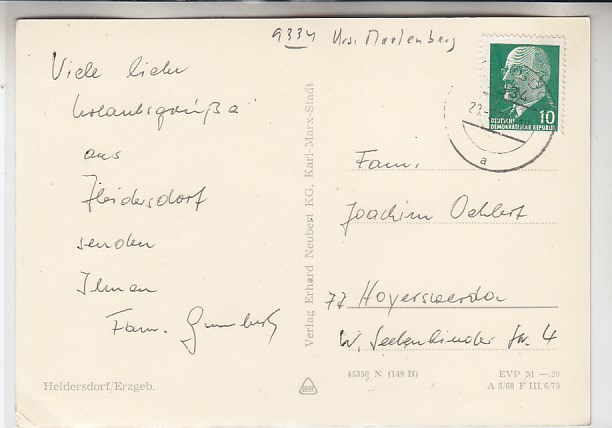 9334 Krs. Marienberg
Viele liebe
Urlaubsgrüße
aus
Heidersdorf
senden
Ihnen
Fam.
Heidersdorf/Erzgeb.
Verlag Erhard Neubert KG, Karl-Marx-Stadt
10
DEUTSCHE
DEMOKRATISCHE REPUBLIK
a
Fam.
Joachim Oehlert
77 Hoyerswerda
W. Seelenbinder Str. 4
45350 N (149 B)
EVP M —.20
A 3/68 F III 6/75